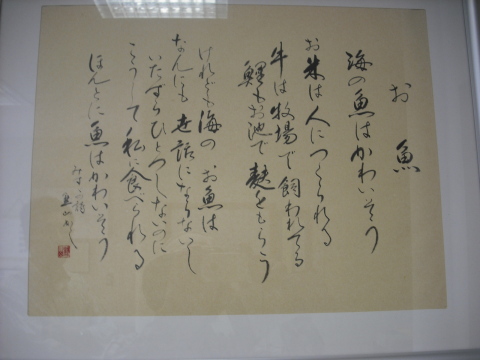 お魚
海の魚はかわいそう
お米は人につくられる
牛は牧場で飼われてる
鯉もお池で麩をもらう
けれども海のお魚は
なんにも世話にならないし
いたずらひとつしないのに
こうして私に食べられる
ほんとに魚はかわいそう
みすゞ詩